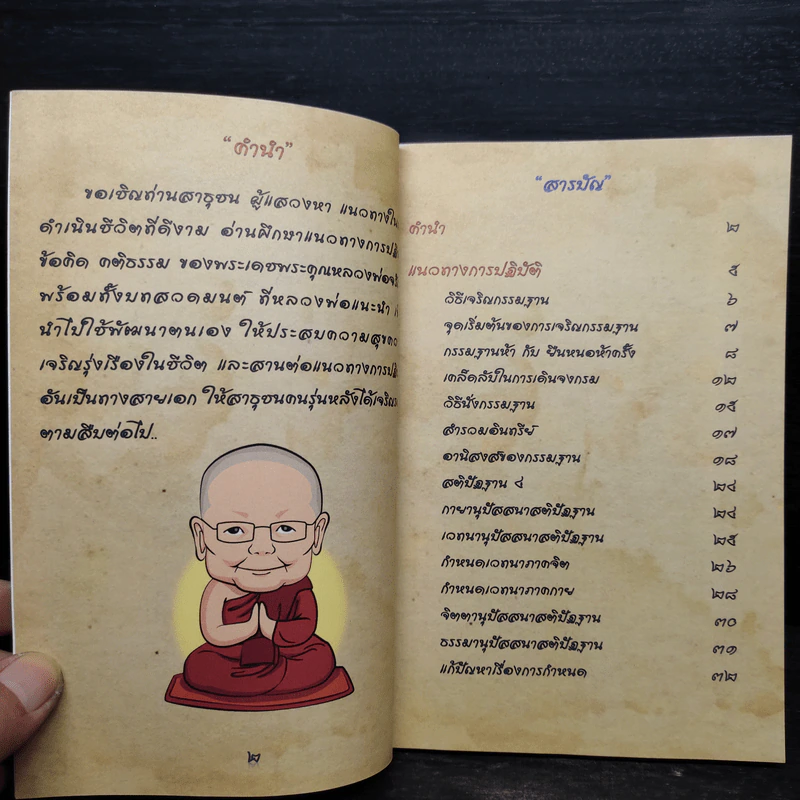 “คำนำ”
ขอเชิญท่านสาธุชน ผู้แสวงหา แนวทางใน
ดำเนินชีวิตที่ดีงาม อ่านศึกษาแนวทางการปฏิ
ข้อคิด คติธรรม ของพระเดชพระคุณหลวงพ่อ
พร้อมทั้งบทสวดมนต์ ที่หลวงพ่อแนะนำ
นำไปใช้พัฒนาตนเอง ให้ประสบความสุข
เจริญรุ่งเรืองในชีวิต และสานต่อแนวทางการปฏิ
อันเป็นทางสายเอก ให้สาธุชนคนรุ่นหลังได้เจริญ
ตามสืบต่อไป..
๒
“สารบัญ”
คำนำ ๒
แนวทางการปฏิบัติ ๕
วิธีเจริญกรรมฐาน ๖
จุดเริ่มต้นของการเจริญกรรมฐาน ๗
กรรมฐานห้า กับ ยืนหนอห้าครั้ง ๘
เคล็ดลับในการเดินจงกรม ๑๒
วิธีนั่งกรรมฐาน ๑๕
สำรวมอินทรีย์ ๑๗
อานิสงส์ของกรรมฐาน ๑๘
สติปัฏฐาน ๔ ๒๔
กายานุปัสสนาสติปัฏฐาน ๒๔
เวทนานุปัสสนาสติปัฏฐาน ๒๕
กำหนดเวทนาภาคจิต ๒๖
กำหนดเวทนาภาคกาย ๒๘
จิตตานุปัสสนาสติปัฏฐาน ๓๐
ธรรมานุปัสสนาสติปัฏฐาน ๓๑
แก้ปัญหาเรื่องการกำหนด ๓๒